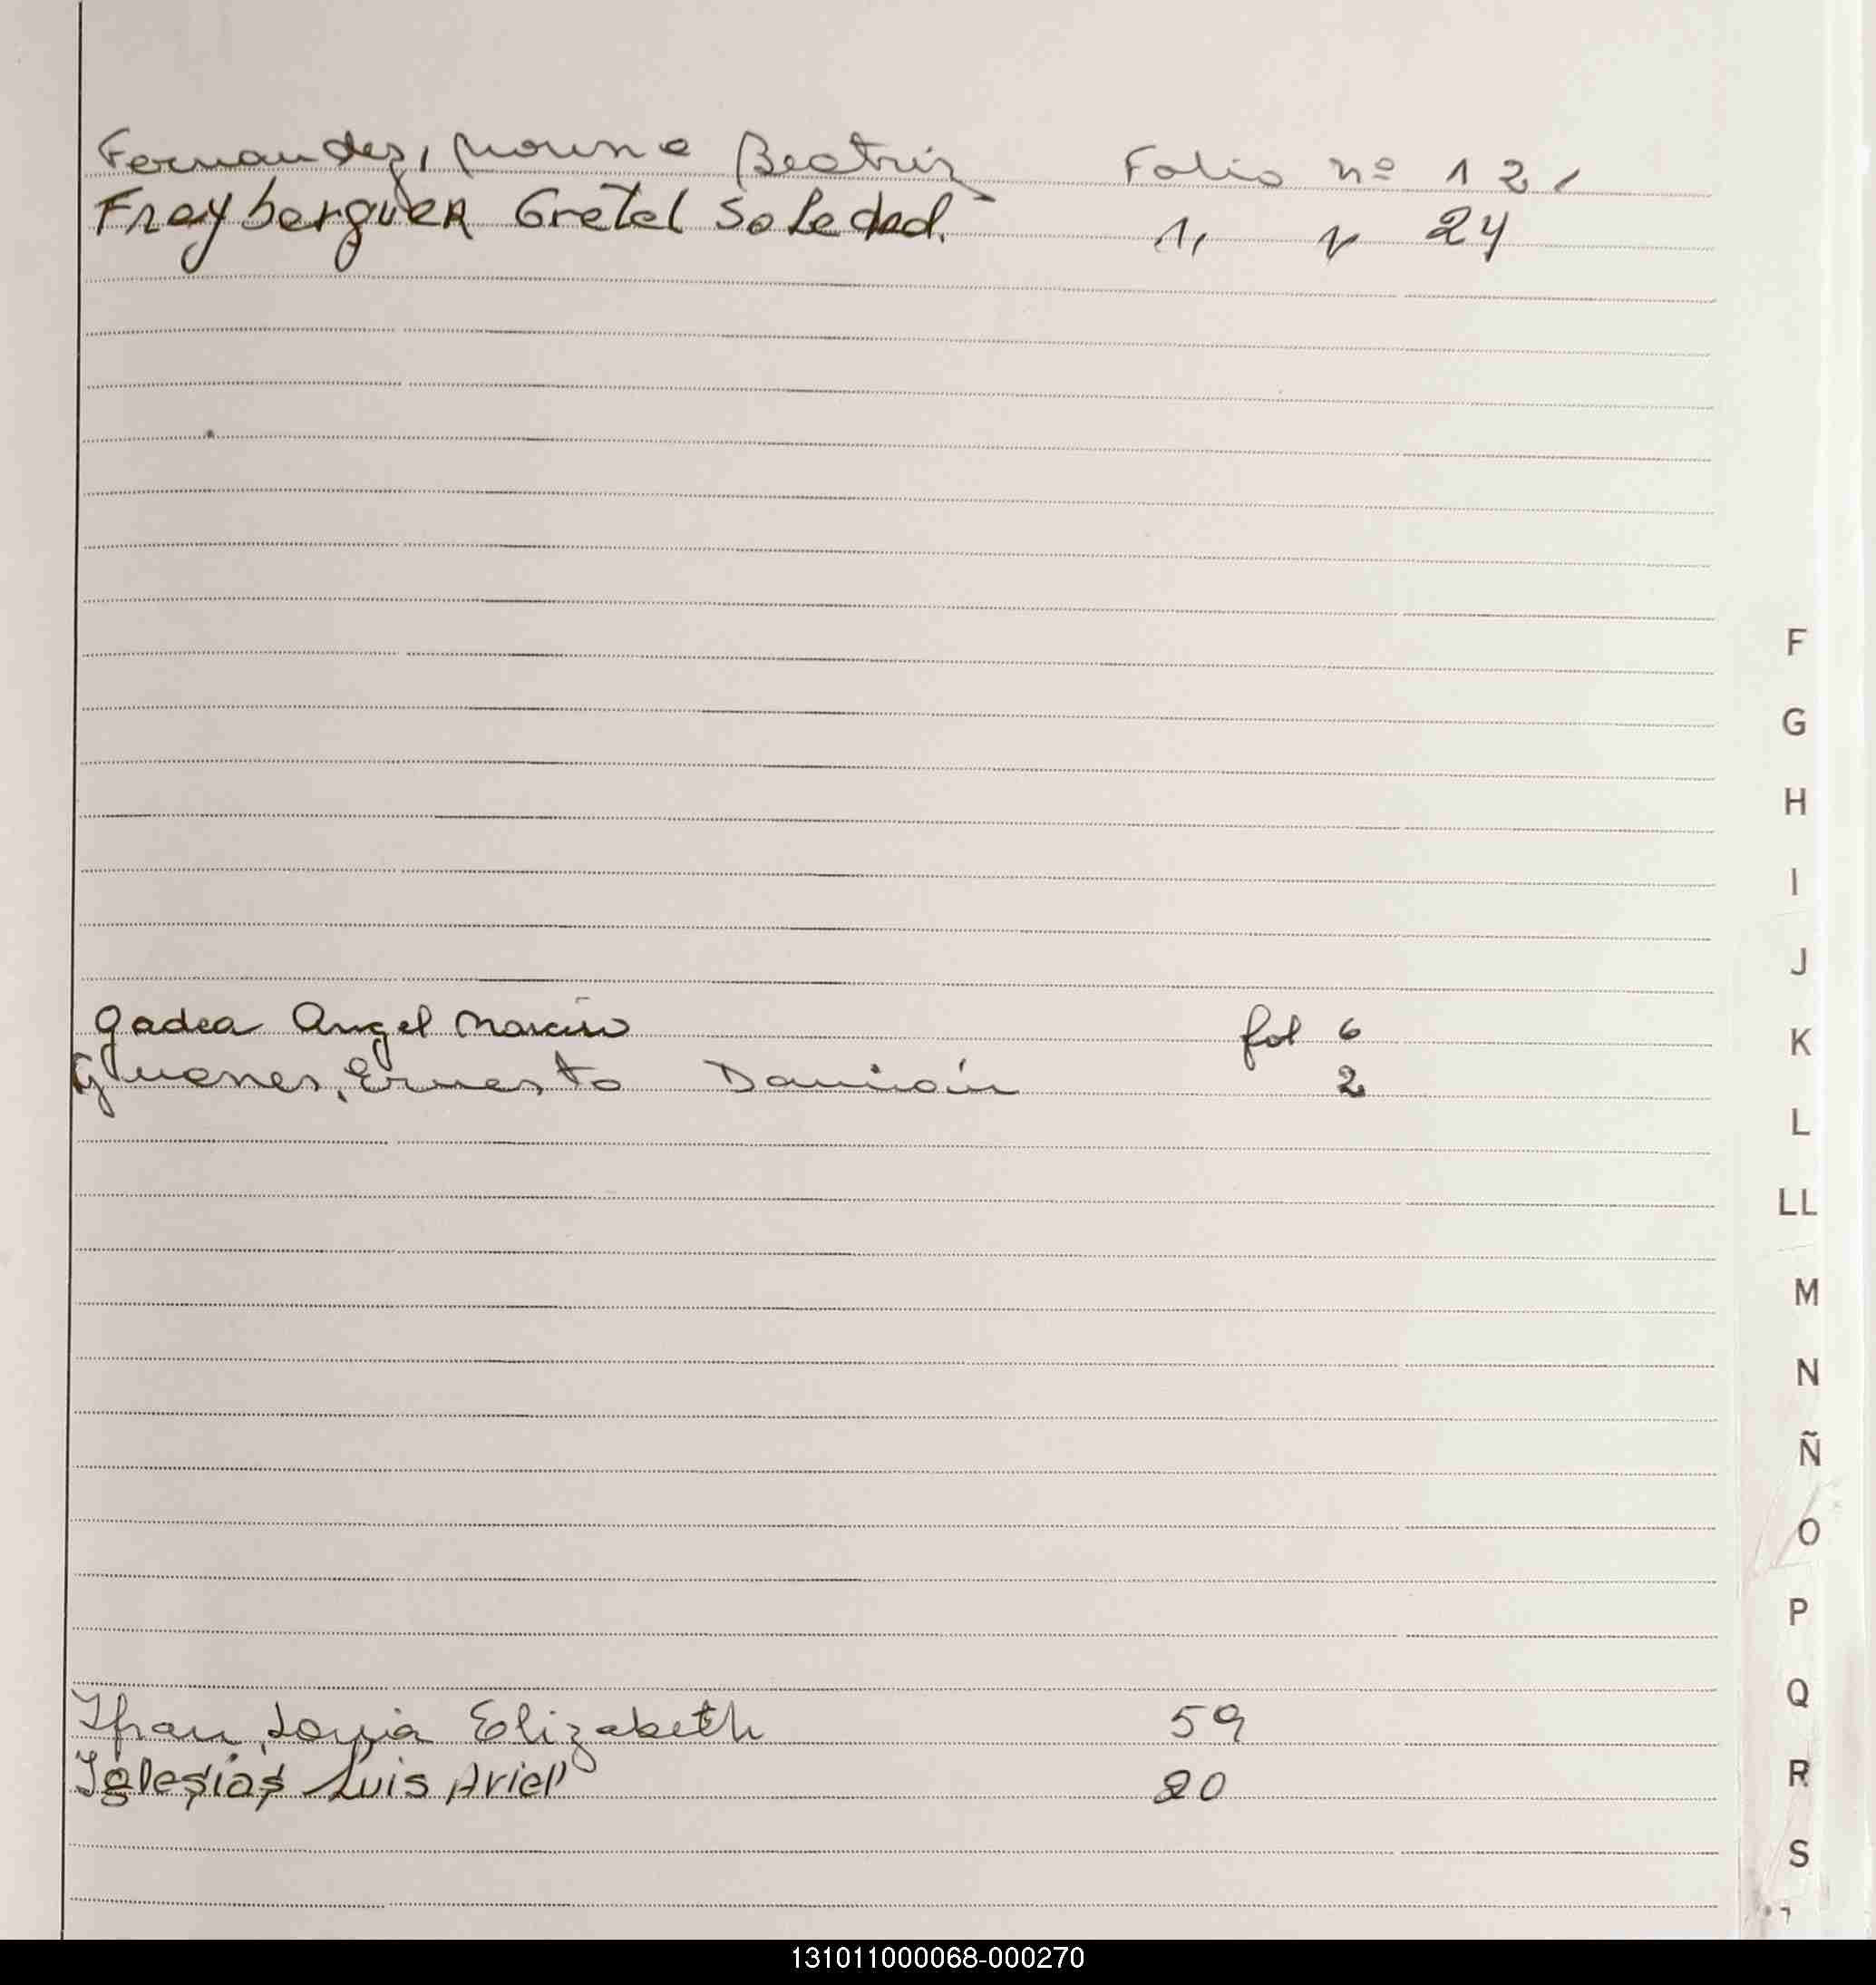 Fernandez, Beatriz Folio nº 12
Frayberguer Gretel Soledad. " " 24
Gadea Angel Narciso fol 6
Ernesto Damián 2
Ifran, Sonia Elizabeth 59
Iglesias Luis Ariel 20
F
G
H
I
J
K
L
LL
M
N
Ñ
O
P
Q
R
S
131011000068-000270